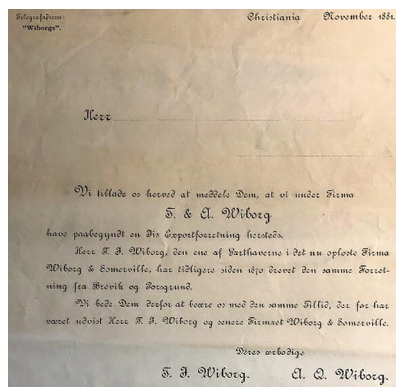 Telegrafadresse:
"Wiborgs".
Christiania November 1881.
Herr
Vi tillade os herved at meddele Dem, at vi under Firma
T. & A. Wiborg
have paabegyndt en Iis Exportforretning hersteds.
Herr T. F. Wiborg, den ene af Parthaverne i det nu opløste Firma
Wiborg & Somerville, har tidligere siden 1870 drevet den samme Forret-
ning fra Brevik og Porsgrund.
Vi bede Dem derfor at beære os med den samme Tillid, der før har
været udvist Herr T. F. Wiborg og senere Firmaet Wiborg & Somerville.
Deres ærbødige
T. F. Wiborg. A. O. Wiborg.